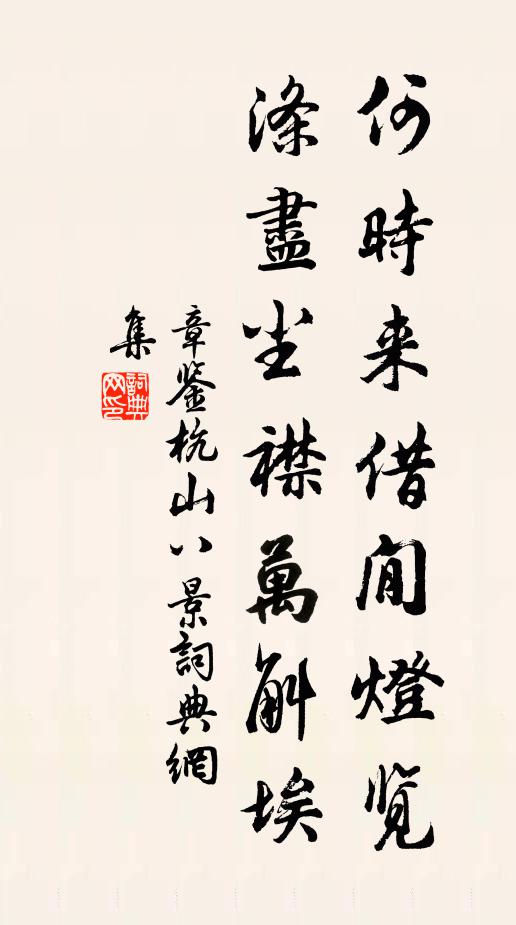 何時来借閒燈覽
滌盡坐襟萬斛埃
章鑒杭山八景詞典網
集
詞典網印